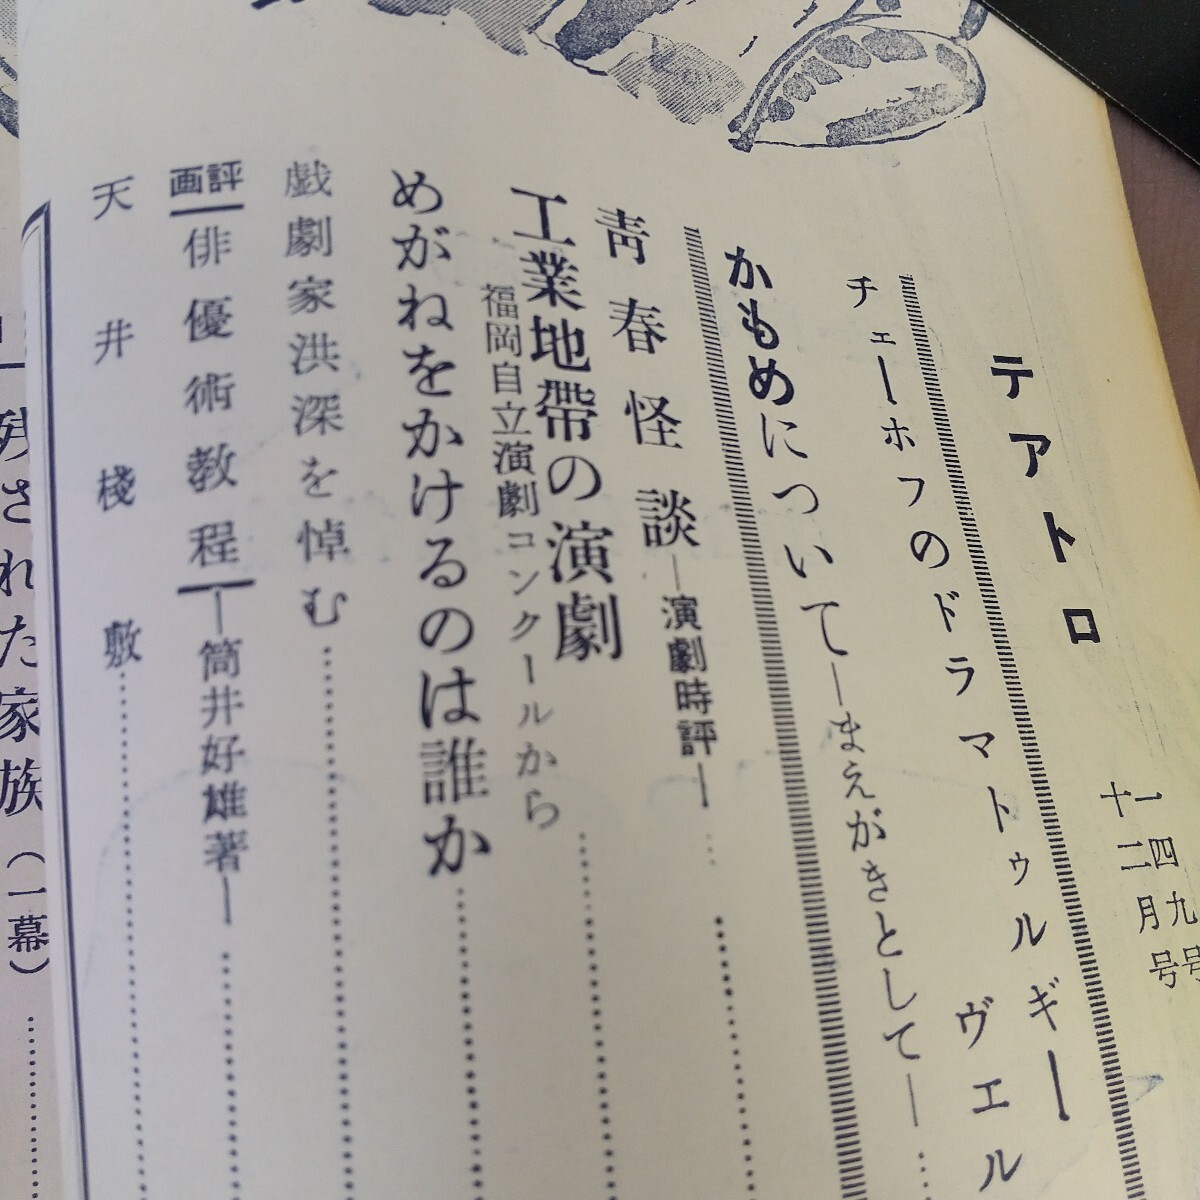 テアトロ
一四九号
十二月号
チェーホフのドラマトゥルギー
ヴエル
かもめについて―まえがきとして―
青春怪談―演劇時評―
工業地帶の演劇
福岡自立演劇コンクールから
めがねをかけるのは誰か
戯劇家洪深を悼む
評画
俳優術教程―筒井好雄著―
天井棧敷
残された家族(一幕)